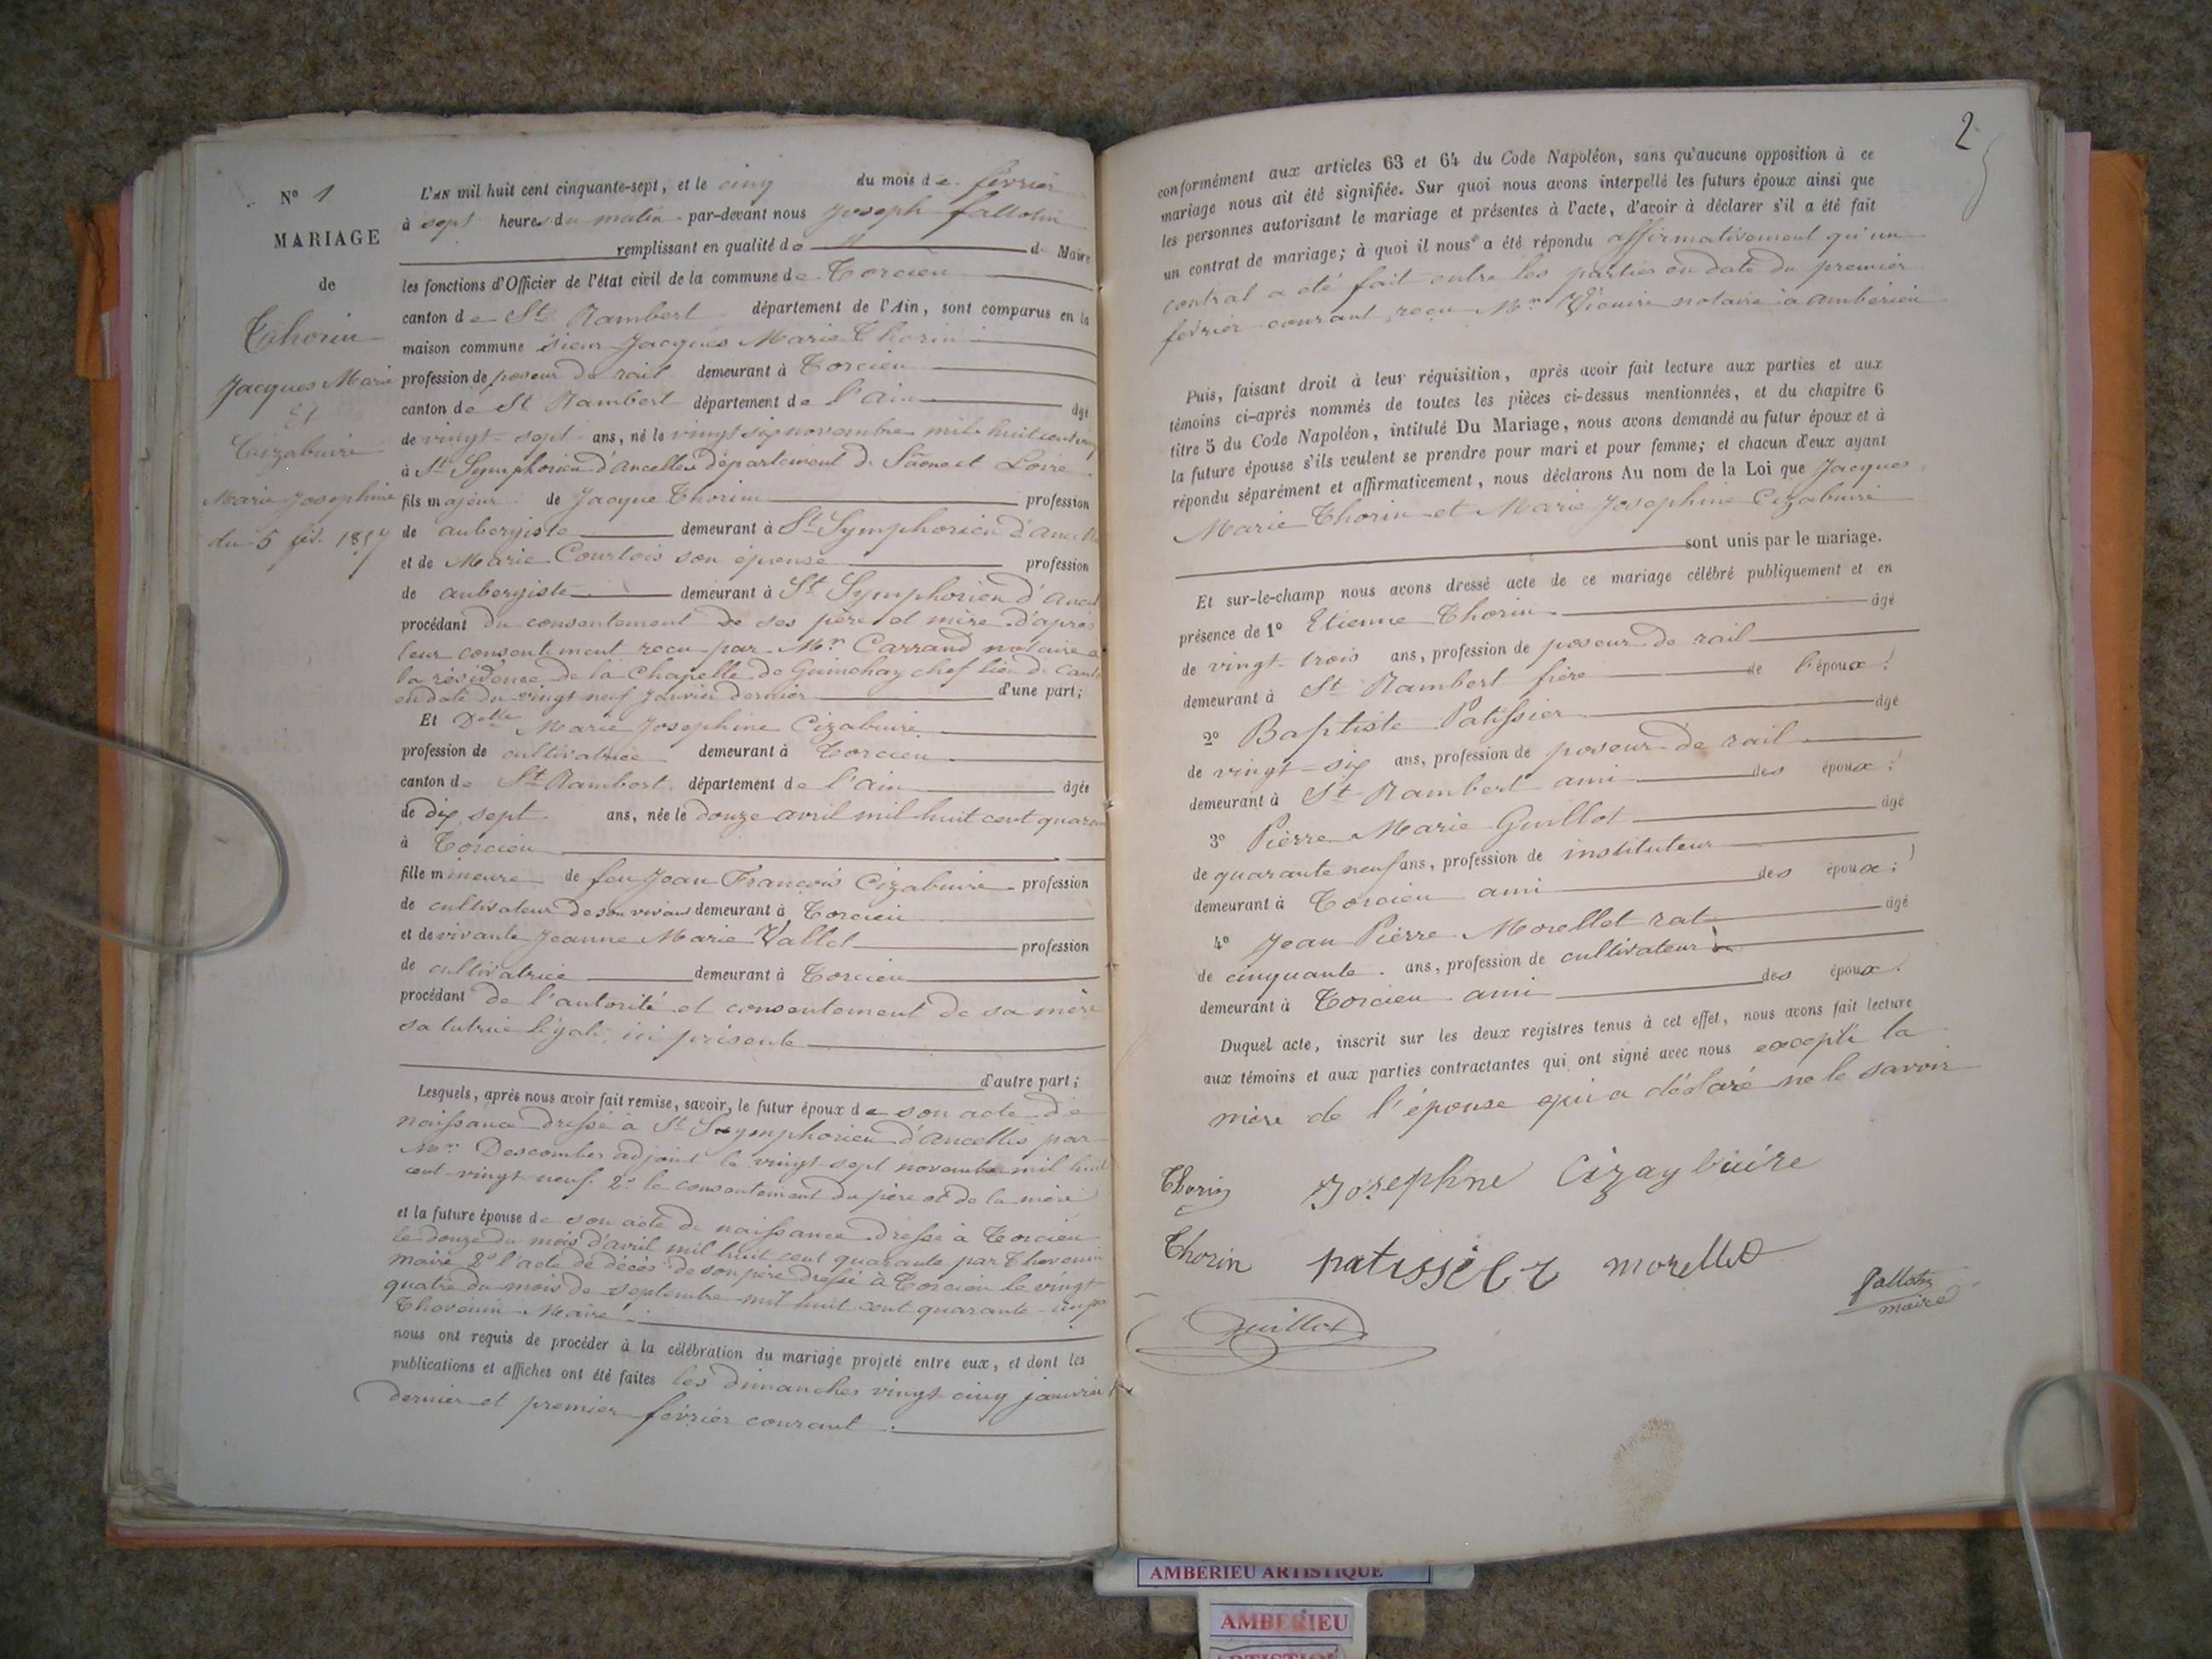 N° 1
MARIAGE
de
Thorin
Jacques Marie
Et
Cizabuire
Marie Josephine
du 5 fév. 1857
L'AN mil huit cent cinquante-sept, et le cinq du mois de février
à sept heures du matin par-devant nous Joseph fallotin
remplissant en qualité de de Maire
les fonctions d'Officier de l'état civil de la commune de Torcieu
canton de St Rambert département de l'Ain, sont comparus en la
maison commune sieur Jacques Marie Thorin
profession de poseur de rail demeurant à Torcieu
canton de St Rambert département de l'ain âgé
de vingt-sept ans, né le vingt six novembre mil huit cent vingt
à St Symphorien d'ancelles département de Saône et Loire
fils majeur de Jacque Thorin profession
de aubergiste demeurant à St Symphorien d'ancelles
et de Marie Courtois son épouse profession
de aubergiste demeurant à St Symphorien d'ancel
procédant du consentement de ses père et mère d'après
leur consentement reçu par Mr Carrand notaire à
la résidence de la Chapelle de Guinchay chef lieu de canto
en date du vingt neuf Janvier dernier d'une part;
Et Delle Marie Josephine Cizabuire
profession de cultivatrice demeurant à Torcieu
canton de St Rambert département de l'ain âgée
de dix sept ans, née le douze avril mil huit cent quaran
à Torcieu
fille mineure de feu Jean François Cizabuire profession
de cultivateur de son vivant demeurant à Torcieu
et de vivante Jeanne Marie Vallet profession
de cultivatrice demeurant à Torcieu
procédant de l'autorité et consentement de sa mère
sa tutrice légale, ici présente
d'autre part;
Lesquels, après nous avoir fait remise, savoir, le futur époux de son acte de
naissance dressé à St Symphorien d'ancelles par
Mr Descombes adjoint le vingt-sept novembre mil huit
cent-vingt-neuf. 2° le consentement du père et de la mère
et la future épouse de son acte de naissance dressé à Torcieu
le douze du mois d'avril mil huit cent quarante par Thevenin
maire 2° l'acte de décès de son père dressé à Torcieu le vingt
quatre du mois de septembre mil huit cent quarante-cinq
Thevenin Maire
nous ont requis de procéder à la célébration du mariage projeté entre eux, et dont les
publications et affiches ont été faites les dimanches vingt cinq janvier
dernier et premier février courant.
2
conformément aux articles 63 et 64 du Code Napoléon, sans qu'aucune opposition à ce
mariage nous ait été signifiée. Sur quoi nous avons interpellé les futurs époux ainsi que
les personnes autorisant le mariage et présentes à l'acte, d'avoir à déclarer s'il a été fait
un contrat de mariage; à quoi il nous a été répondu affirmativement qu'un
contrat a été fait entre les parties en date du premier
février courant reçu Mr notaire à amberieu
Puis, faisant droit à leur réquisition, après avoir fait lecture aux parties et aux
témoins ci-après nommés de toutes les pièces ci-dessus mentionnées, et du chapitre 6
titre 5 du Code Napoléon, intitulé Du Mariage, nous avons demandé au futur époux et à
la future épouse s'ils veulent se prendre pour mari et pour femme; et chacun d'eux ayant
répondu séparément et affirmativement, nous déclarons Au nom de la Loi que Jacques
Marie Thorin et Marie Josephine Cizabuire
sont unis par le mariage.
Et sur-le-champ nous avons dressé acte de ce mariage célébré publiquement et en
présence de 1° Etienne Thorin âgé
de vingt-trois ans, profession de poseur de rail
demeurant à St Rambert frère de l'époux;
2° Baptiste Patissier âgé
de vingt-six ans, profession de poseur de rail
demeurant à St Rambert ami des époux;
3° Pierre Marie Guillot âgé
de quarante neuf ans, profession de instituteur
demeurant à Torcieu ami des époux;
4° Jean Pierre Morellet rat âgé
de cinquante ans, profession de cultivateur
demeurant à Torcieu ami des époux.
Duquel acte, inscrit sur les deux registres tenus à cet effet, nous avons fait lecture
aux témoins et aux parties contractantes qui ont signé avec nous excepté la
mère de l'épouse qui a déclaré ne le savoir
Thorin Josephne Cizaybuire
Thorin patissier morellet
Guillot
fallotin
maire
AMBERIEU ARTISTIQUE
AMBERIEU
ARTISTIQUE